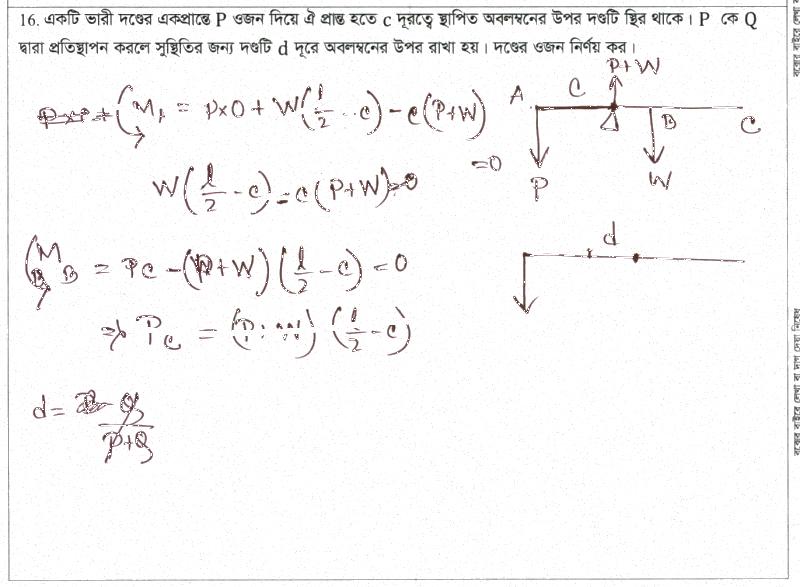 16. একটি ভারী দণ্ডের একপ্রান্তে P ওজন দিয়ে ঐ প্রান্ত হতে c দূরত্বে স্থাপিত অবলম্বনের উপর দণ্ডটি স্থির থাকে। P কে Q
দ্বারা প্রতিস্থাপন করলে সুস্থিতির জন্য দণ্ডটি d দূরে অবলম্বনের উপর রাখা হয়। দণ্ডের ওজন নির্ণয় কর।
P+W
A C
M₁ = P×0 + W(l/2 - c) - c(P+W)
=0
B C
P W
W(l/2 - c) = c(P+W)
d
M B = Pc - (P+W)(l/2 - c) = 0
⇒ Pc = (P+W)(l/2 - c)
d = Q/P+Q